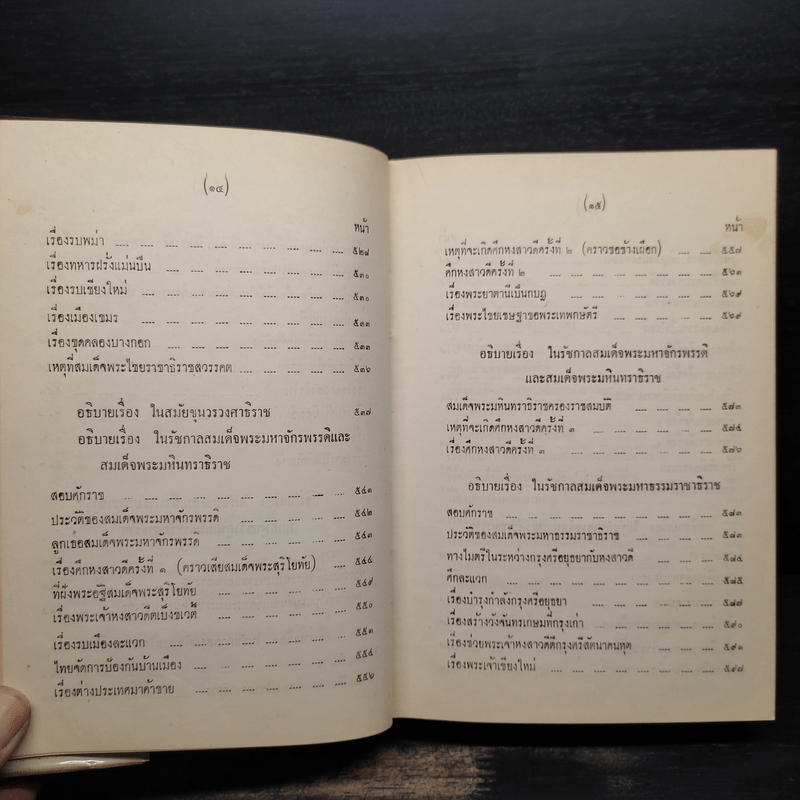 (๑๔)
หน้า
เรื่องรบพม่า .... .... .... .... .... .... .... .... ๕๒๘
เรื่องทหารฝรั่งแม่นปืน .... .... .... .... .... .... ๕๓๐
เรื่องรบเชียงใหม่ .... .... .... .... .... .... .... ๕๓๐
เรื่องเมืองเขมร .... .... .... .... .... .... .... ๕๓๓
เรื่องขุดคลองบางกอก .... .... .... .... .... .... ๕๓๓
เหตุที่สมเด็จพระไชยราชาธิราชสวรรคต .... .... .... .... ๕๓๖
อธิบายเรื่อง ในสมัยขุนวรวงศาธิราช ๕๓๗
อธิบายเรื่อง ในรัชกาลสมเด็จพระมหาจักรพรรดิและ
สมเด็จพระมหินทราธิราช
สอบศักราช .... .... .... .... .... .... .... .... ๕๔๑
ประวัติของสมเด็จพระมหาจักรพรรดิ .... .... .... .... ๕๔๒
ลูกเธอสมเด็จพระมหาจักรพรรดิ .... .... .... .... ๕๔๓
เรื่องศึกหงสาวดีครั้งที่ ๑ (คราวเสียสมเด็จพระสุริโยทัย) .... ๕๔๔
ที่ฝังพระอัฐิสมเด็จพระสุริโยทัย .... .... .... .... ๕๔๙
เรื่องพระเจ้าหงสาวดีตเบ็งชเวตี้ .... .... .... .... ๕๕๐
เรื่องรบเมืองละแวก .... .... .... .... .... .... ๕๕๑
ไทยจัดการป้องกันบ้านเมือง .... .... .... .... .... ๕๕๔
เรื่องต่างประเทศมาค้าขาย .... .... .... .... .... ๕๕๖
(๑๕)
หน้า
เหตุที่จะเกิดศึกหงสาวดีครั้งที่ ๒ (คราวขอช้างเผือก) .... .... ๕๕๗
ศึกหงสาวดีครั้งที่ ๒ .... .... .... .... .... .... ๕๖๑
เรื่องพระยาตานีเป็นกบฏ .... .... .... .... .... ๕๖๙
เรื่องพระไชยเชษฐาขอพระเทพกษัตรี .... .... .... .... ๕๖๙
อธิบายเรื่อง ในรัชกาลสมเด็จพระมหาจักรพรรดิ
และสมเด็จพระมหินทราธิราช
สมเด็จพระมหินทราธิราชครองราชสมบัติ .... .... .... .... ๕๗๓
เหตุที่จะเกิดศึกหงสาวดีครั้งที่ ๓ .... .... .... .... ๕๗๔
เรื่องศึกหงสาวดีครั้งที่ ๓ .... .... .... .... .... ๕๗๖
อธิบายเรื่อง ในรัชกาลสมเด็จพระมหาธรรมราชาธิราช
สอบศักราช .... .... .... .... .... .... .... ๕๘๓
ประวัติของสมเด็จพระมหาธรรมราชาธิราช .... .... .... .... ๕๘๓
ทางไมตรีในระหว่างกรุงศรีอยุธยากับหงสาวดี .... .... .... ๕๘๔
ศึกละแวก .... .... .... .... .... .... .... ๕๘๕
เรื่องบำรุงกำลังกรุงศรีอยุธยา .... .... .... .... .... ๕๘๗
เรื่องสร้างวังจันทรเกษมที่กรุงเก่า .... .... .... .... ๕๙๐
เรื่องช่วยพระเจ้าหงสาวดีตีกรุงศรีสัตนาคนหุต .... .... .... ๕๙๑
เรื่องพระเจ้าเชียงใหม่ .... .... .... .... .... .... ๕๙๗